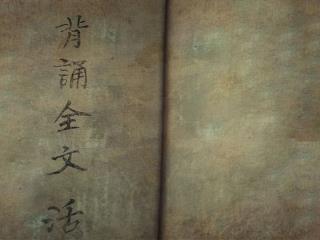 背誦全文活